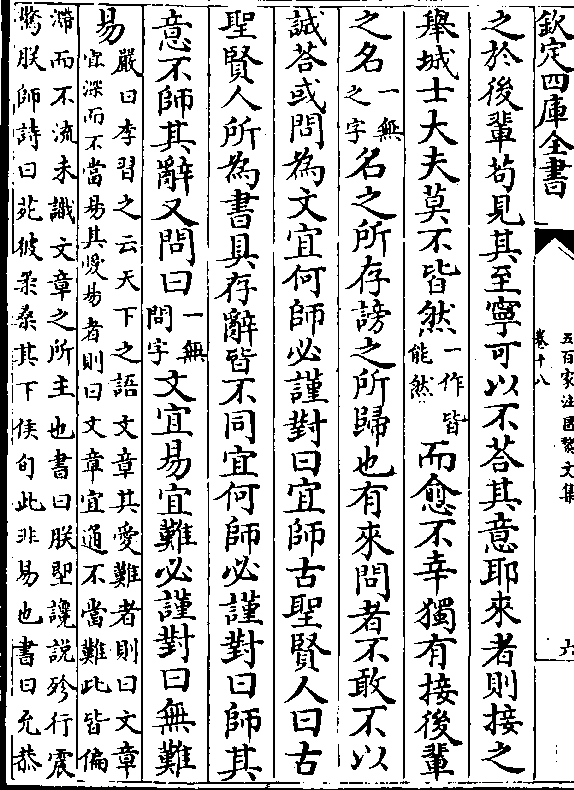 欽定四庫全書
五百家注昌黎文集
卷十八
六
之於後輩苟見其至寧可以不荅其意耶來者則接之
舉城士大夫莫不皆然一作皆能然而愈不幸獨有接後輩
之名一無之字名之所存謗之所歸也有來問者不敢不以
誠荅或問為文宜何師必謹對曰宜師古聖賢人曰古
聖賢人所為書具存辭皆不同宜何師必謹對曰師其
意不師其辭又問曰一無問字文宜易宜難必謹對曰無難
易嚴曰李習之云天下之語文章其愛難者則曰文章
宜深而不當易其愛易者則曰文章宜通不當難此皆偏
滯而不流未識文章之所主也書曰朕堲讒說殄行震
驚朕師詩曰菀彼柔桑其下侯旬此非易也書曰允恭